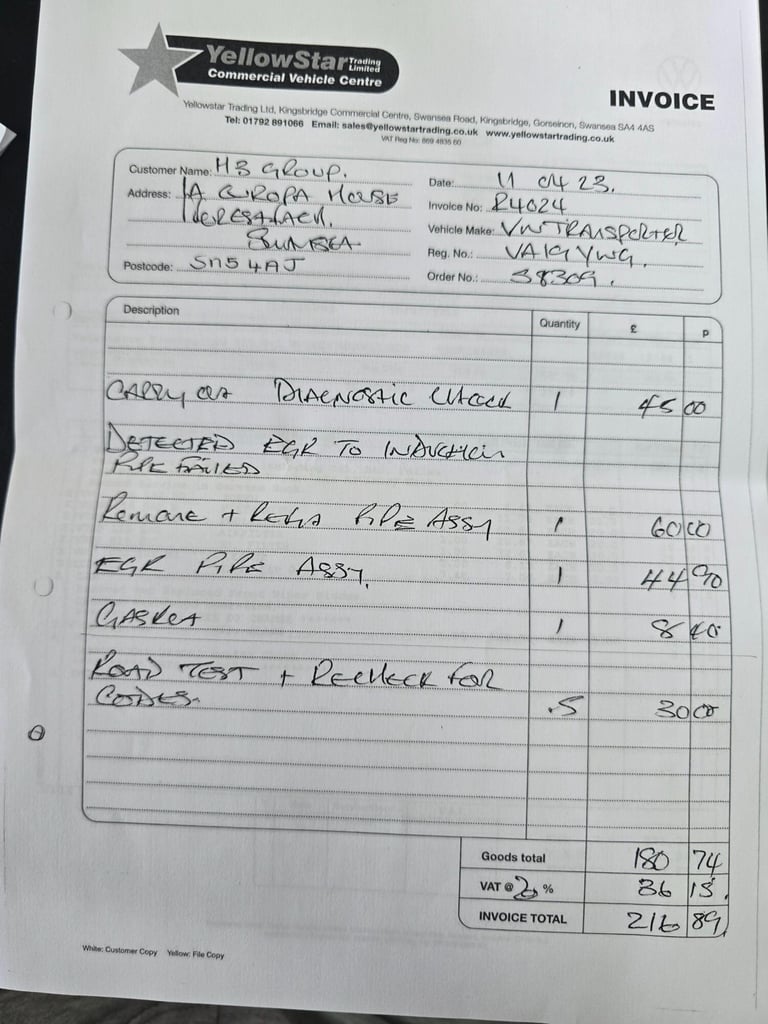 YellowStar Trading Limited
Commercial Vehicle Centre
INVOICE
Yellowstar Trading Ltd, Kingsbridge Commercial Centre, Swansea Road, Kingsbridge, Gorseinon, Swansea SA4 4AS
Tel: 01792 891066 Email: sales@yellowstartrading.co.uk www.yellowstartrading.co.uk
VAT Reg No: 869 4835 60
Customer Name: H3 GROUP.
Address: 1A EUROPA HOUSE
Postcode: SN5 4AJ
Date: 11 04 23.
Invoice No: R4024
Vehicle Make: VW TRANSPORTER
Reg. No.: VA19 YWG.
Order No.: 38309.
Description Quantity £ p
CARRY OUT DIAGNOSTIC CHECK 1 45 00
DETECTED EGR TO INDUCTION
PIPE FAILED
REMOVE + PIPE ASSY 1 60 00
EGR PIPE ASSY. 1 44 90
GASKET 1 8
ROAD TEST + RECHECK FOR
CODES. .5 30 00
Goods total 180 74
VAT @ 20 % 36 15.
INVOICE TOTAL 216 89
White: Customer Copy Yellow: File Copy